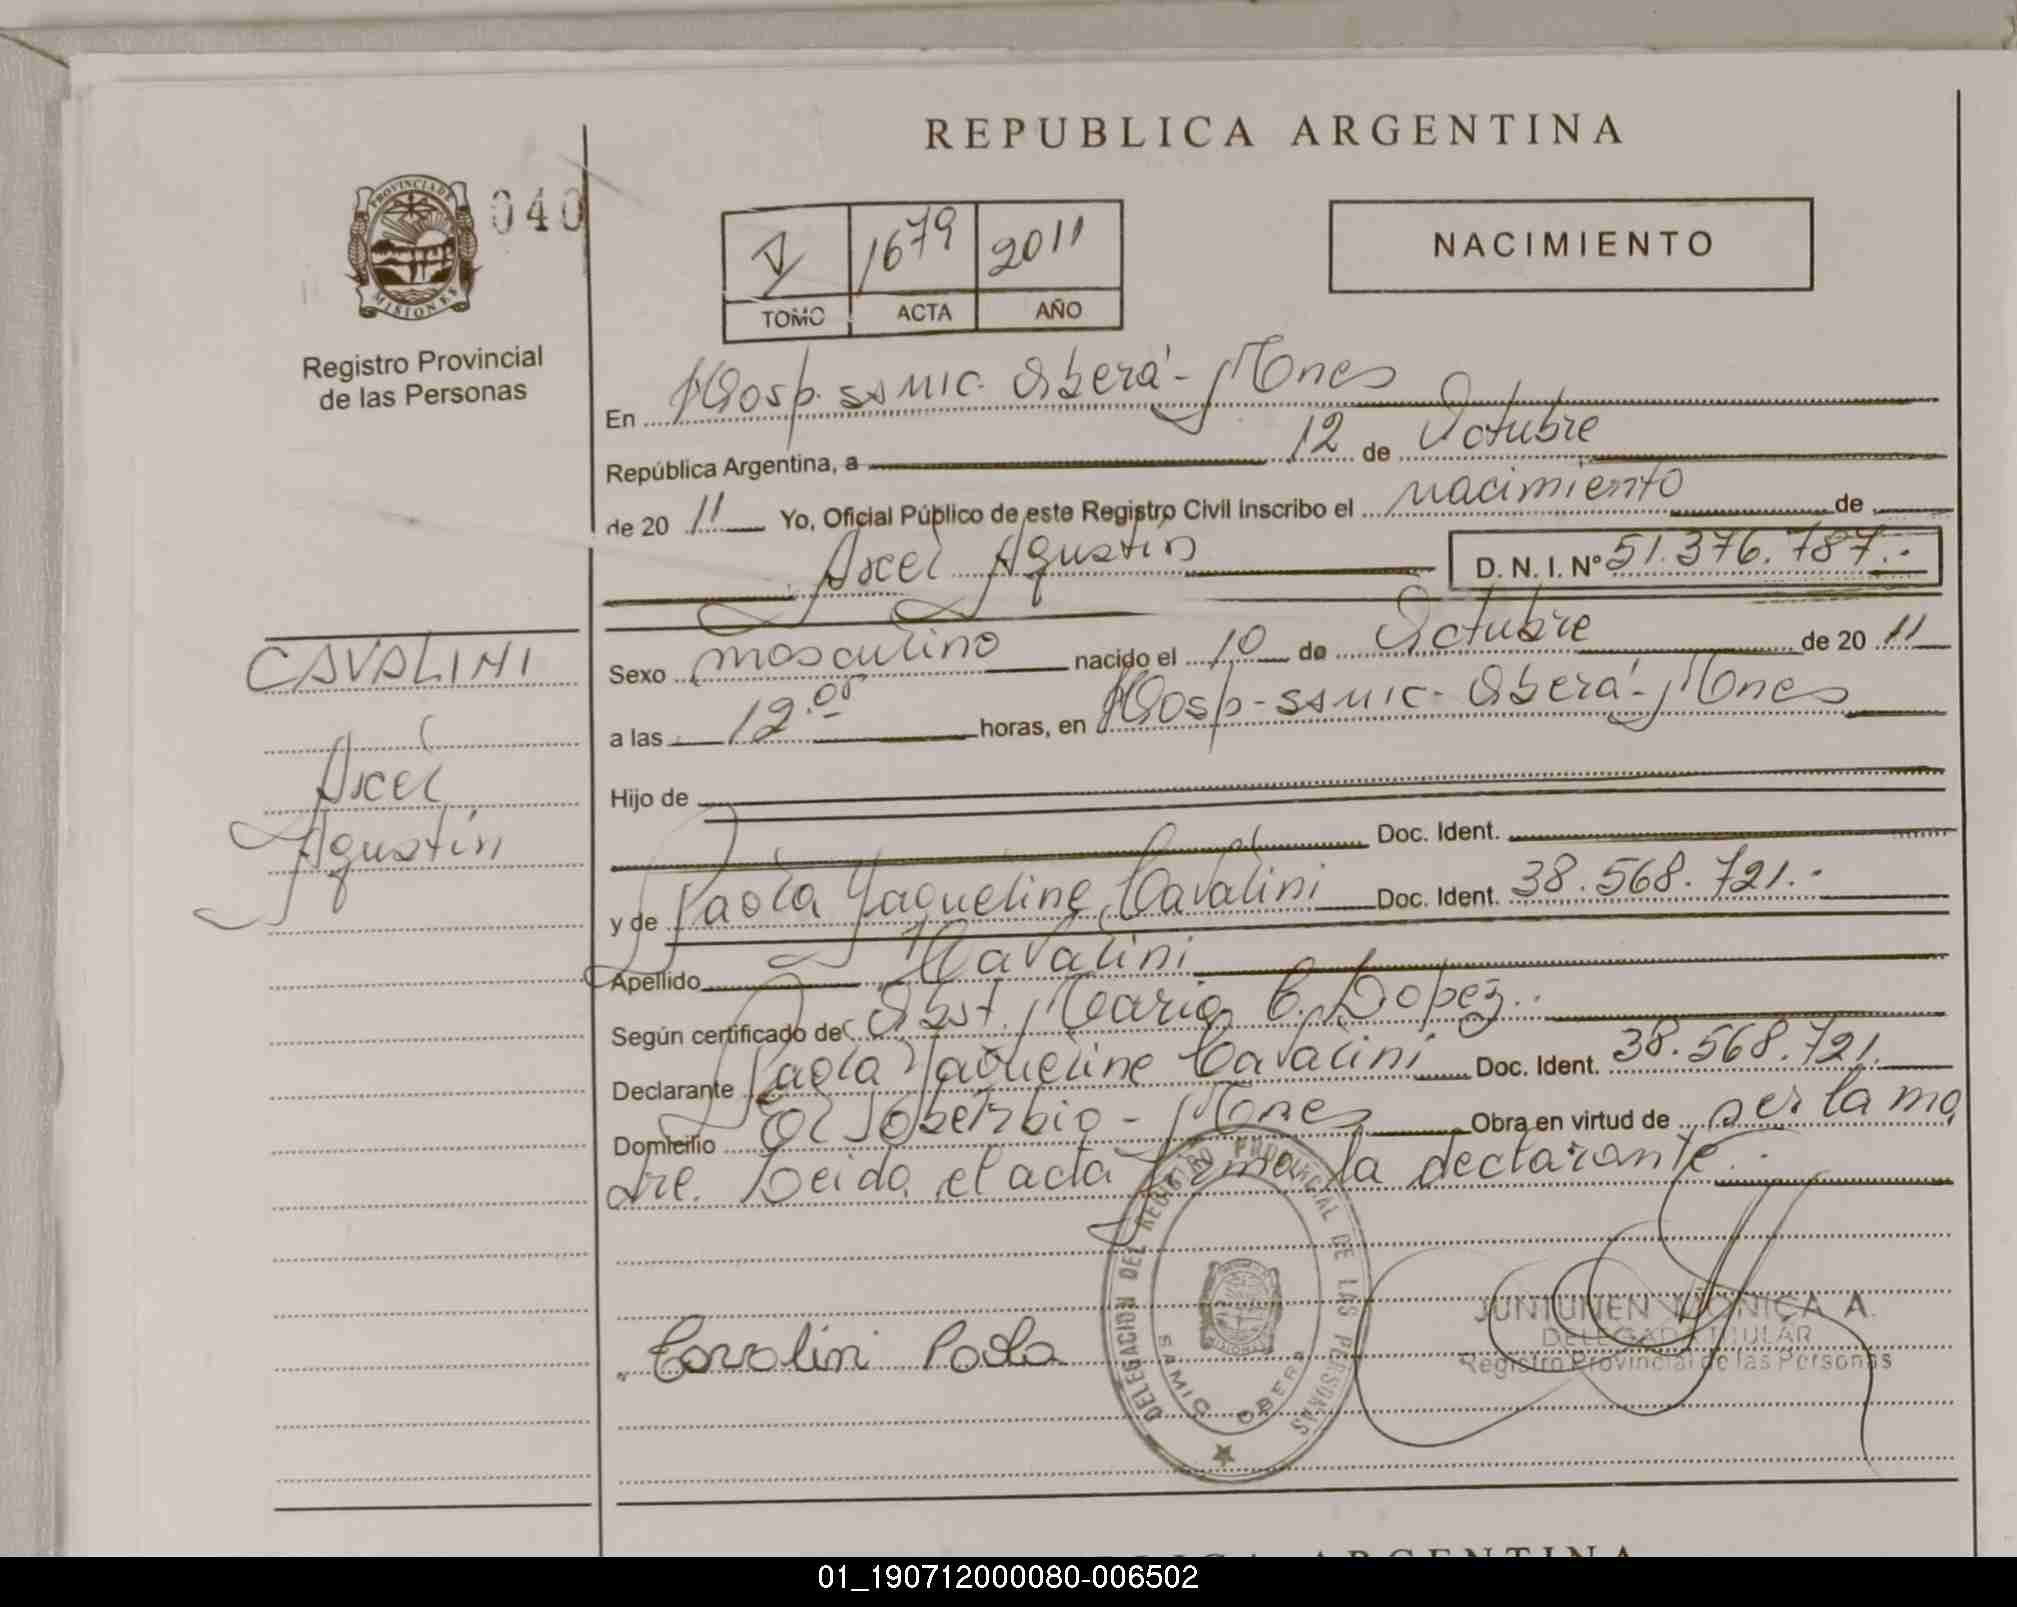 REPUBLICA ARGENTINA
PROVINCIA DE
MISIONES
040
Registro Provincial
de las Personas
V 1679 2011
TOMO ACTA AÑO
NACIMIENTO
En Hosp. SAMIC. Oberá - Mnes
República Argentina, a 12 de Octubre
de 20 11 Yo, Oficial Público de este Registro Civil Inscribo el nacimiento de
Axel Agustín D. N. I. Nº 51.376.787.-
CAVALINI
Axel
Agustín
Sexo masculino nacido el 10 de Octubre de 20 11
a las 12.00 horas, en Hosp - SAMIC - Oberá - Mnes
Hijo de
Doc. Ident.
y de Paola Yaqueline Cavalini Doc. Ident. 38.568.721.-
Apellido Cavalini
Según certificado de Obst. Maria C. Lopez.
Declarante Paola Yaqueline Cavalini Doc. Ident. 38.568.721.
Domicilio El Soberbio - Mnes Obra en virtud de ser la ma
dre. Leida el acta firma la declarante.-
DELEGACION DEL REGISTRO PROVINCIAL DE LAS PERSONAS
SAMIC OBERA
Cavalini Paola
MONICA A.
DELEGADA TITULAR
Registro Provincial de las Personas
ARGENTINA
01_190712000080-006502